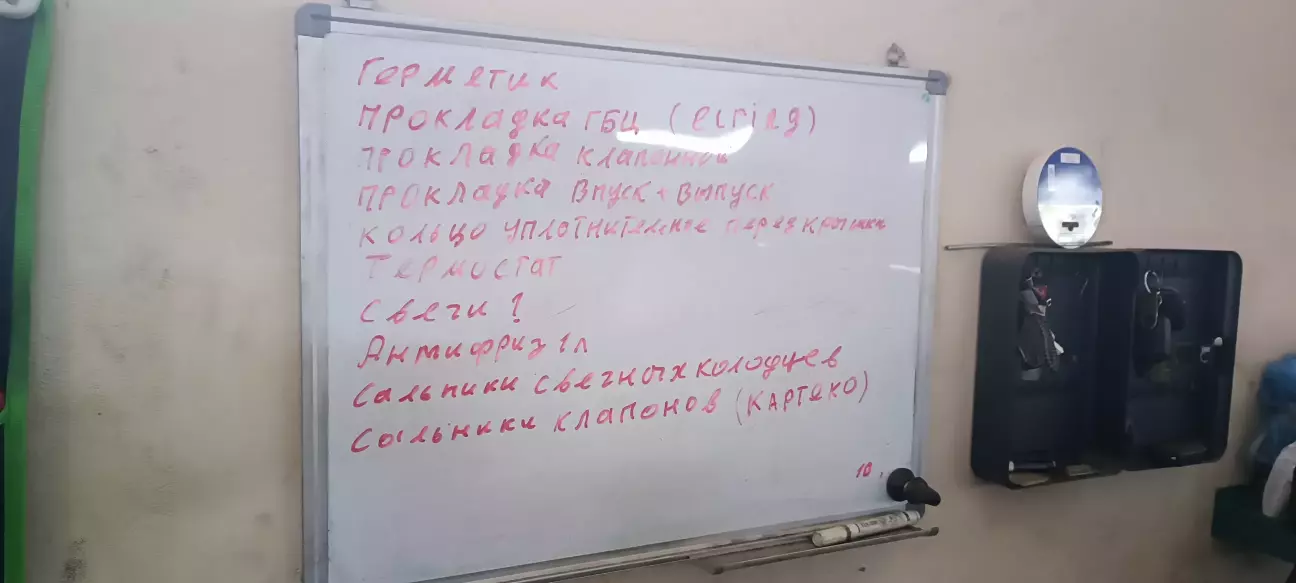 Герметик
Прокладка ГБЦ (elring)
Прокладка клапанной
Прокладка Впуск + Выпуск
Кольцо уплотнительное перед крышки
Термостат
Свечи ?
Антифриз 1л
Сальники свечных колодцев
Сальники клапонов (КАРТЕКО)
10